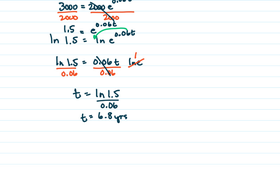 3000 = 2000 e^0.06t
2000 2000
1.5 = e^0.06t
ln 1.5 = ln e^0.06t
ln 1.5 = 0.06t ln e 1
0.06 0.06
t = ln 1.5
0.06
t = 6.8 yrs